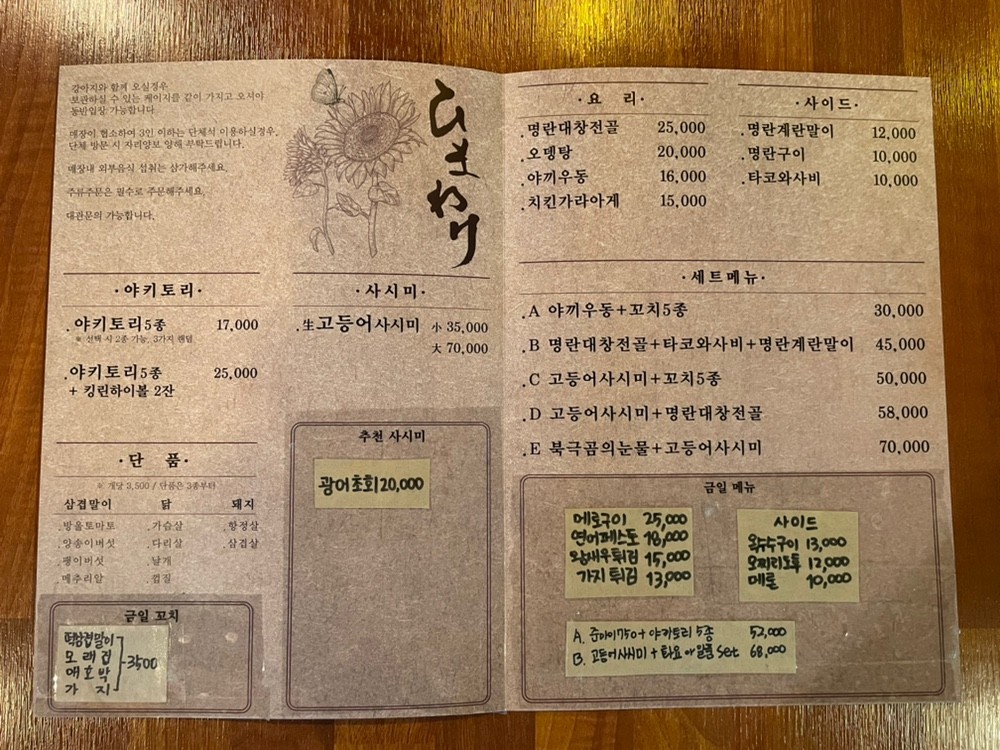 강아지와 함께 오실경우
보관하실 수 있는 케이지를 같이 가지고 오셔야
동반입장 가능합니다.
매장이 협소하여 3인 이하는 단체석 이용하실경우,
단체 방문 시 자리양보 양해 부탁드립니다.
매장내 외부음식 섭취는 삼가해주세요.
주류주문은 필수로 주문해주세요.
대관문의 가능합니다.
ひまわり
·야키토리·
.야키토리5종 17,000
※ 선택 시 2종 가능, 3가지 랜덤
.야키토리5종 25,000
+ 킹린하이볼 2잔
·단 품·
※ 개당 3,500 / 단품은 3종부터
삼겹말이 닭 돼지
.방울토마토 .가슴살 .항정살
.양송이버섯 .다리살 .삼겹살
.팽이버섯 .날개
.메추리알 .껍질
금일 꼬치
떡삼겹말이
모래집
애호박
가지
3500
·사시미·
.生고등어사시미 小 35,000
大 70,000
추천 사시미
광어초회 20,000
·요 리·
.명란대창전골 25,000
.오뎅탕 20,000
.야끼우동 16,000
.치킨가라아게 15,000
·사이드·
.명란계란말이 12,000
.명란구이 10,000
.타코와사비 10,000
·세트메뉴·
.A 야끼우동+꼬치5종 30,000
.B 명란대창전골+타코와사비+명란계란말이 45,000
.C 고등어사시미+꼬치5종 50,000
.D 고등어사시미+명란대창전골 58,000
.E 북극곰의눈물+고등어사시미 70,000
금일 메뉴
메로구이 25,000
연어페스토 18,000
왕새우튀김 15,000
가지튀김 13,000
사이드
옥수수구이 13,000
오찌리도후 12,000
메론 10,000
A. 준마이750+야키토리 5종 52,000
B. 고등어사시미+화요 set 68,000